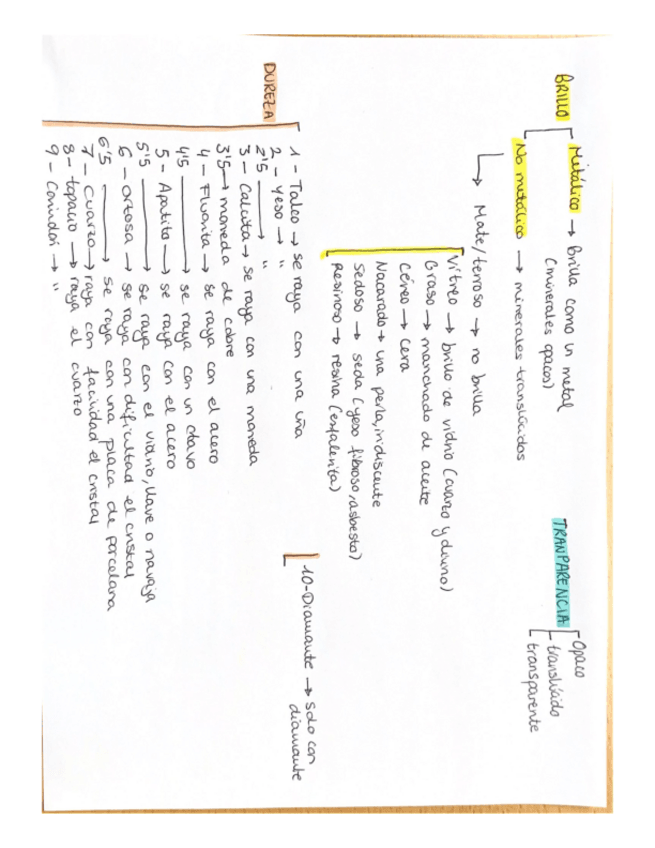 BRILLO
Metálico → Brilla como un metal
(minerales opacos)
No metálico → minerales translúcidos
Mate/terroso → no brilla
Vítreo → brillo de vidrio (cuarzo y olivino)
Graso → manchado de aceite
Céreo → cera
Nacarado → una perla, iridiscente
Sedoso → seda (yeso fibroso, asbesto)
Resinoso → resina (esfalerita)
TRANPARENCIA
Opaco
translúcido
transparente
DUREZA
1 - Talco → se raya con una uña
2 - Yeso → "
2'5 → "
3 - Calcita → se raya con una moneda
3'5 → moneda de cobre
4 - Fluorita → se raya con el acero
4'5 → se raya con un clavo
5 - Apatito → se raya con el acero
5'5 → se raya con el vidrio, llave o navaja
6 - Ortosa → se raya con dificultad el cristal
6'5 → se raya con una placa de porcelana
7 - Cuarzo → raya con facilidad el cristal
8 - topacio → raya el cuarzo
9 - Corindón → "
10 - Diamante → solo con
diamante